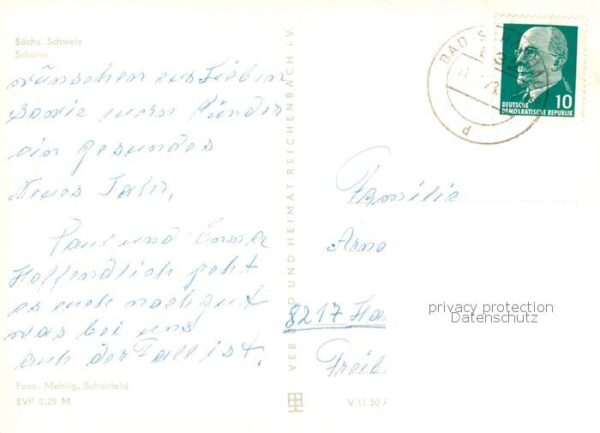 Sächs. Schweiz
Schöna
wünschen euch Lieben
sowie euern Kinder
ein gesundes
Neues Jahr,
Paul und Emma
Hoffendlich geht
es euch noch gut
was bei uns
auch der Fall ist.
Foto: Mehlig, Schönfeld
EVP 0,25 M
VEB BILD UND HEIMAT REICHENBACH i. V.
V 11 50
BAD
DEUTSCHE
DEMOKRATISCHE REPUBLIK
10
Familie
Arno
8217 Ha
Freib
privacy protection
Datenschutz